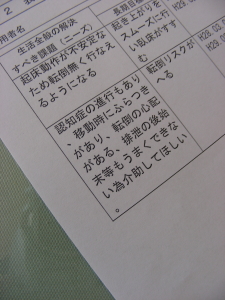 用者名
生活全般の解決
すべき課題（ニーズ）
起床動作が不安定な
ため転倒無く行なえ
るようになる
認知症の進行もあり
、移動時にふらつき
があり、転倒の心配
がある、排泄の後始
末等もうまくできな
い為介助してほしい
。
長期目標
起き上がりを
スムーズに行
い臥床がすす
む
転倒リスクが
へる
H29.
H29.